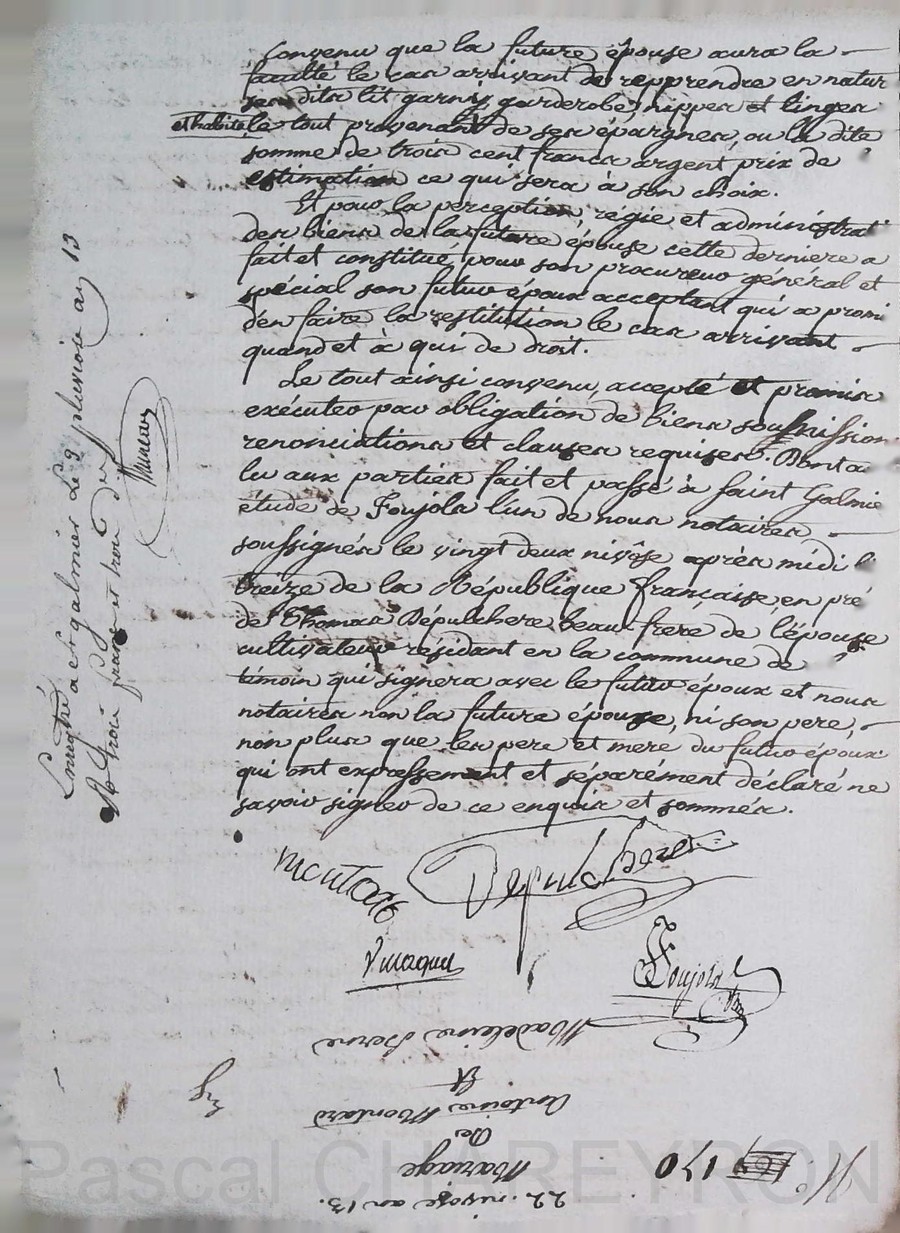 convenu que la future épouse aura la
faculté le cas arrivant de repprendre en natur
ses dits lit garny, garderobe, nippes et linges
et habits le tout provenant de ses épargnes, ou la dite
somme de trois cent francs argent prix de
estimation ce qui sera à son choix.
Et pour la perception, regie et administrat
des biens de la future épouse cette derniere a
fait et constitué pour son procureur général et
spécial son futur époux acceptant qui a promi
d'en faire la restitution le cas arrivant
quand et à qui de droit.
Le tout ainsi convenu, accepté et promis
exécuter par obligation de biens soumission
renonciations et clauses requises. Dont a
lu aux parties fait et passé à Saint Galmié
étude de Foujols l'un de nous notaires
soussignés le vingt deux nivôse après midi l'
treize de la République française, en pré
de Thomas Dépulchere beau-frere de l'épouse
cultivateur résidant en la commune de
témoin qui signera avec le futur époux et nous
notaires non la future épouse, ni son pere,
non plus que les pere et mere du futur époux
qui ont expressement et séparément déclaré ne
savoir signer de ce enquis et sommés.
Montard
Depulchere
Foujols
Enregtré à St galmier Le 9 pluviose an 13
trois francs et trois
Madeleine Berne
Et
Antoine Montard
De
Mariage
22 nivose an 13.
170